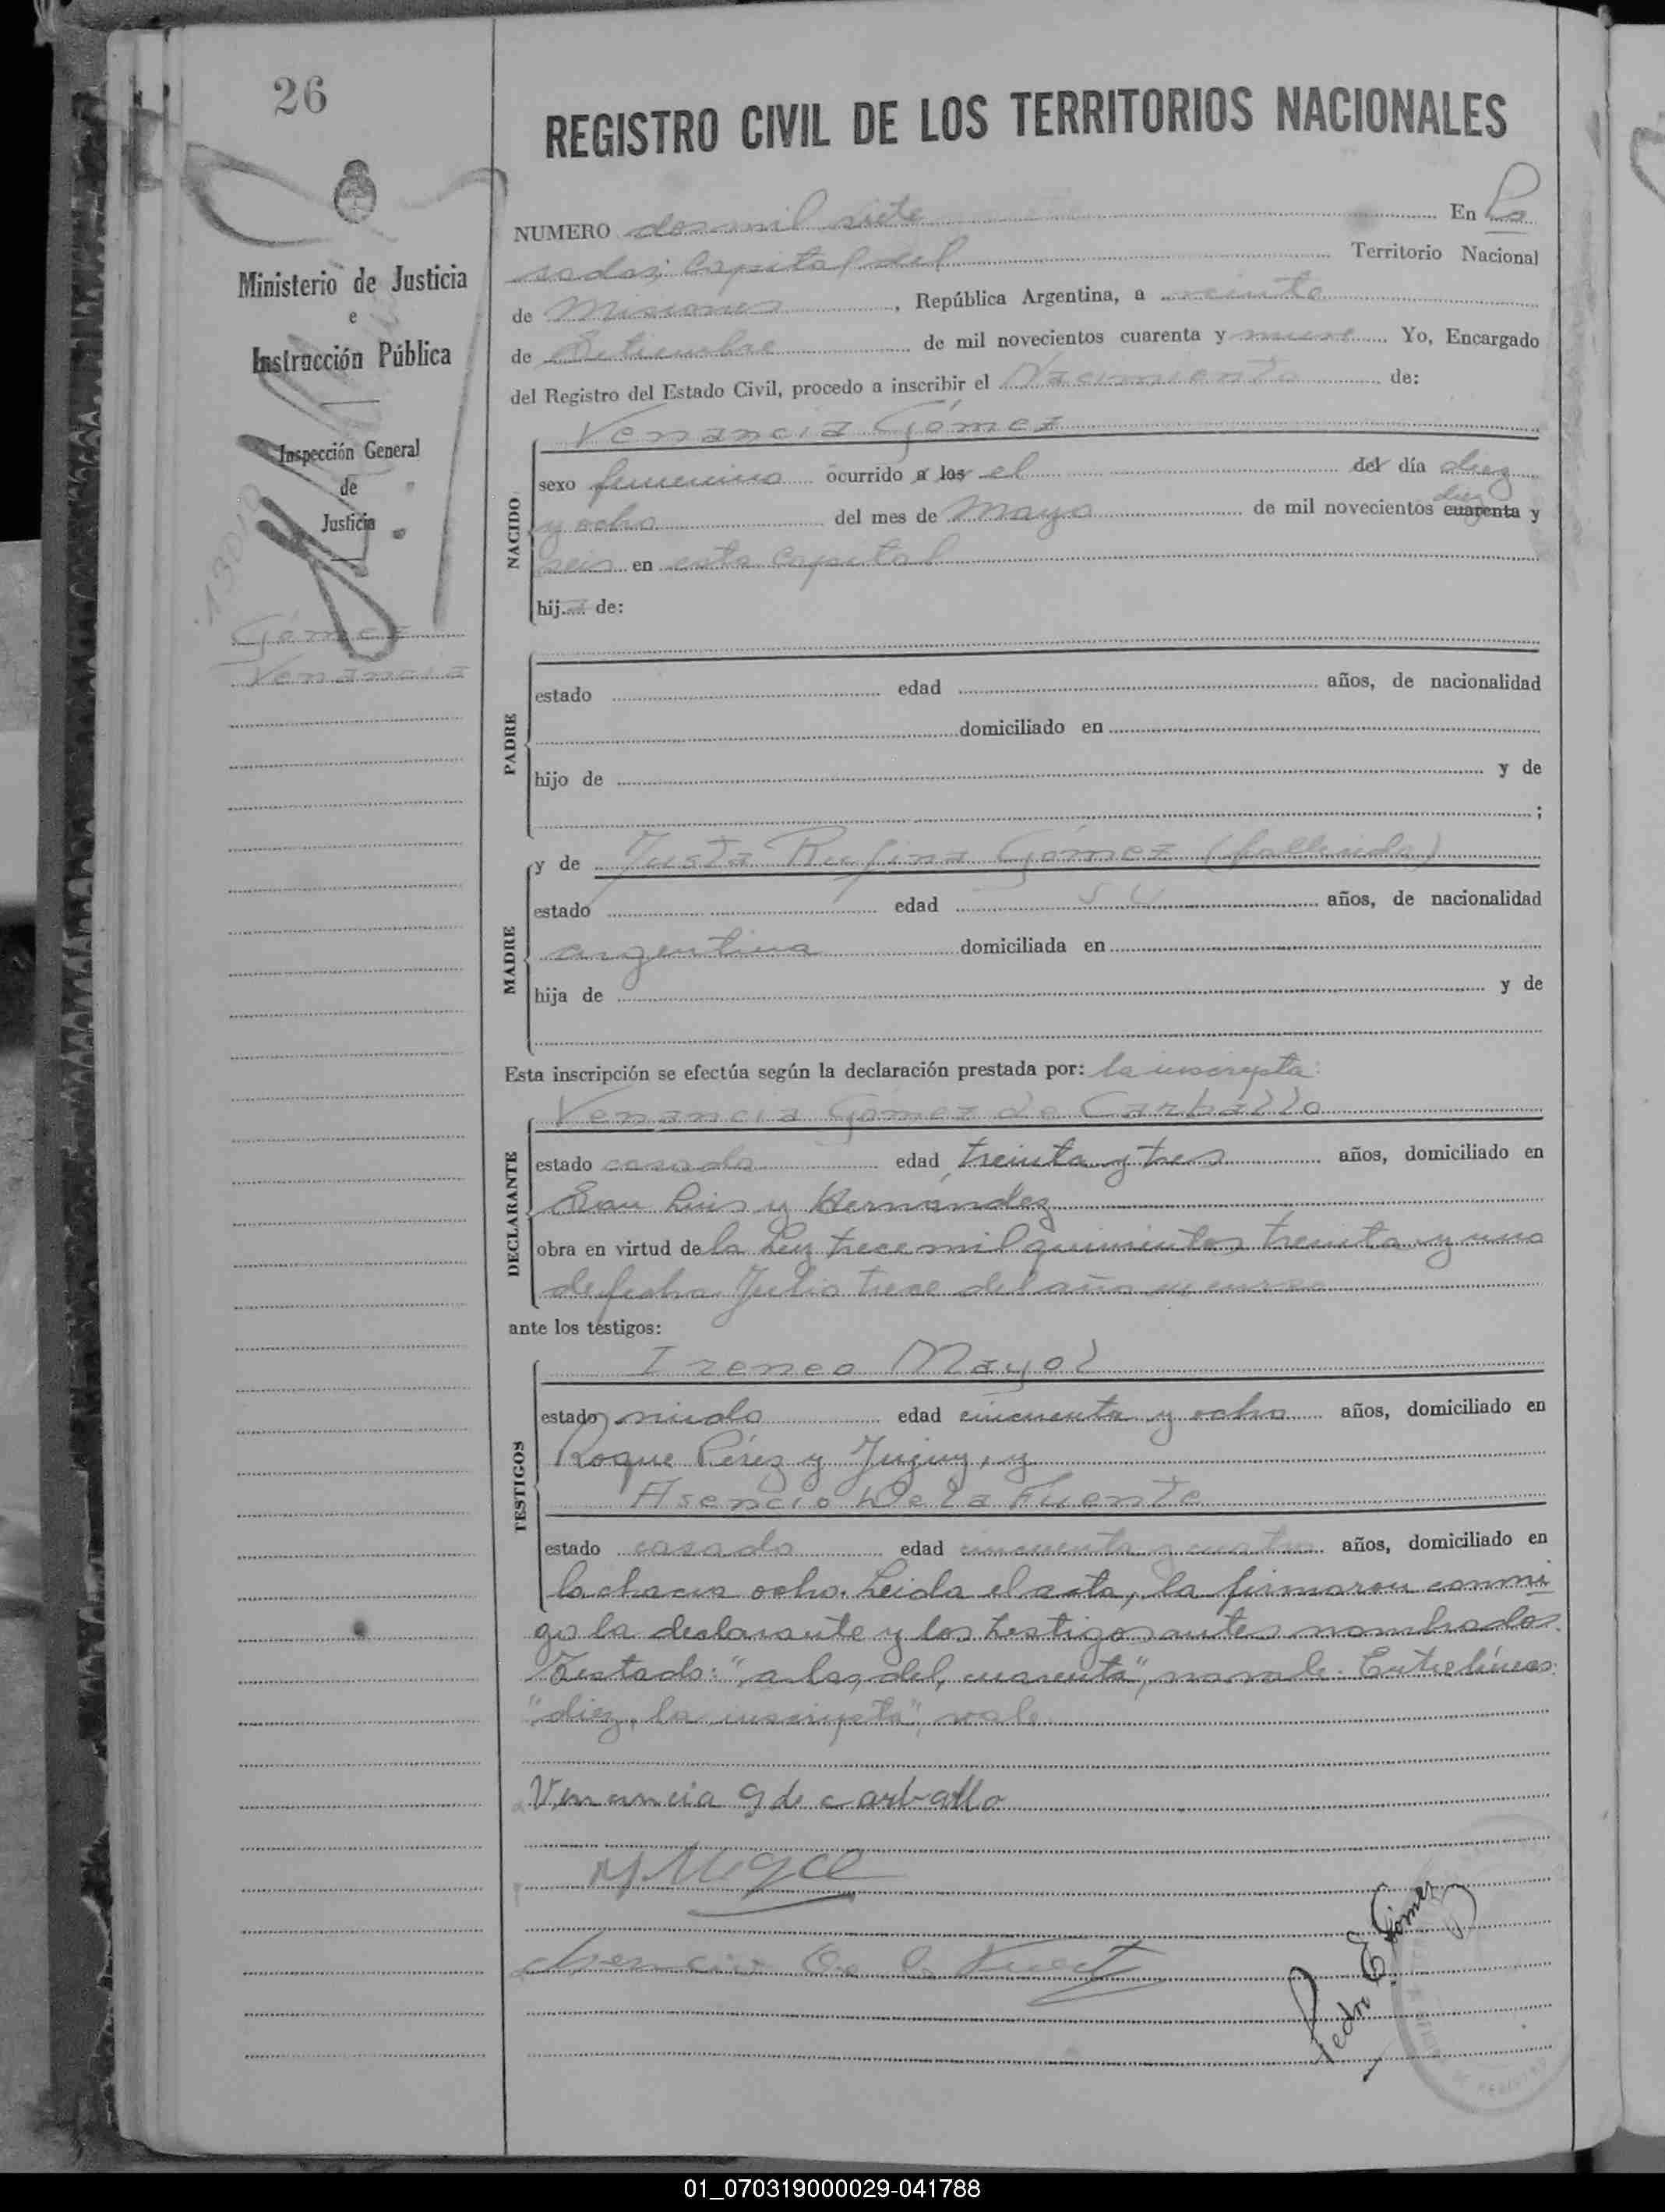 26
REGISTRO CIVIL DE LOS TERRITORIOS NACIONALES
Ministerio de Justicia
e
Instrucción Pública
Inspección General
de
Justicia
Gómez
Venancia
NUMERO dos mil siete En Po
sadas, Capital del Territorio Nacional
de Misiones, República Argentina, a veinte
de Setiembre de mil novecientos cuarenta y nueve Yo, Encargado
del Registro del Estado Civil, procedo a inscribir el Nacimiento de:
NACIDO
Venancia Gómez
sexo femenino ocurrido a las el del día diez
y ocho del mes de Mayo de mil novecientos cuarenta diez y
seis en esta Capital
hija de:
PADRE
estado edad años, de nacionalidad
domiciliado en
hijo de y de
;
MADRE
y de Justa Rufina Gómez (fallecida)
estado edad años, de nacionalidad
argentina domiciliada en
hija de y de
Esta inscripción se efectúa según la declaración prestada por: la inscripta:
DECLARANTE
Venancia Gómez de Carballo
estado casada edad treinta y tres años, domiciliado en
San Luis y Hernández
obra en virtud de la Ley trece mil quinientos treinta y uno
de fecha Julio trece del año en curso
ante los testigos:
TESTIGOS
Ireneo Mayol
estado viudo edad cincuenta y ocho años, domiciliado en
Roque Pérez y Jujuy, y
Asencio De la Fuente
estado casado edad cincuenta y cuatro años, domiciliado en
la chacra ocho. Leida el acta, la firmaron conmi
go la declarante y los testigos antes nombrados.
Testado: "a las, del, cuarenta", no vale. Entrelíneas:
"diez, la inscripta", vale.
Venancia G de Carballo
Asencio De la Fuente
Pedro E. Gómez
01_070319000029-041788